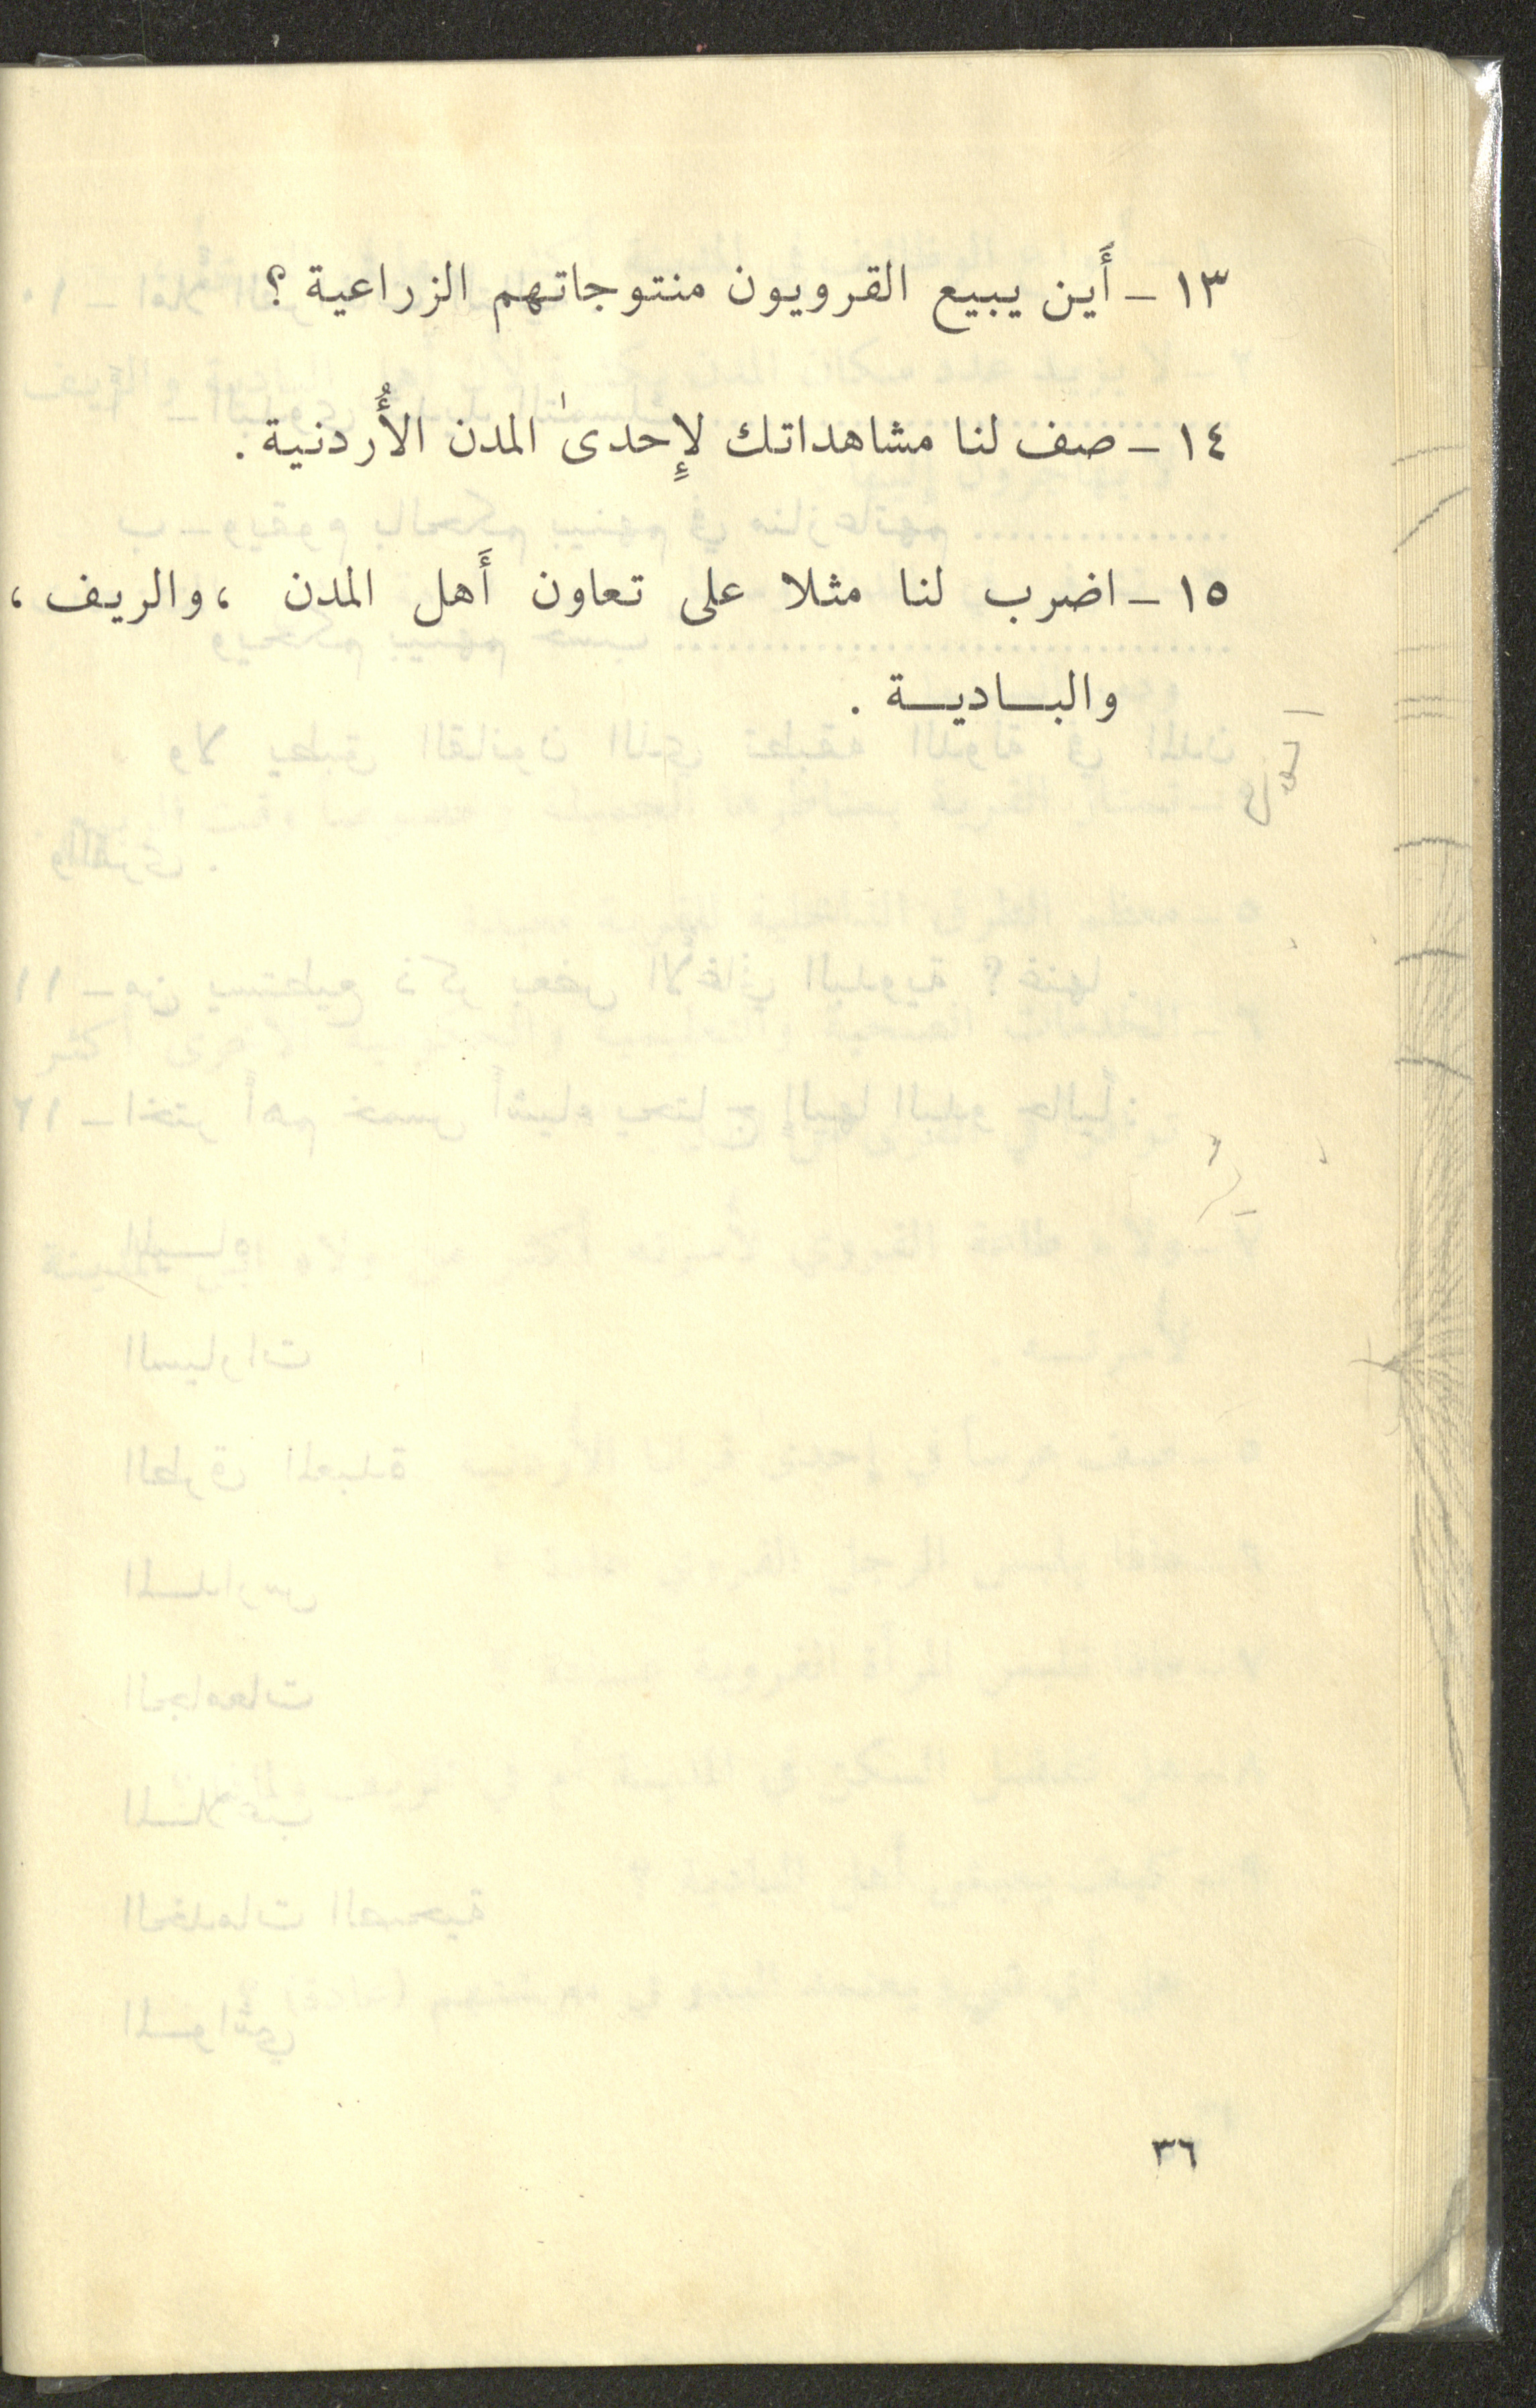 ١٣ - أَين يبيع القرويون منتوجاتهم الزراعية ؟
١٤ - صف لنا مشاهداتك لإِحدىٰ المدن الأُردنية .
١٥ - اضرب لنا مثلا على تعاون أَهل المدن ، والريف ،
والبـاديـة .
٣٦